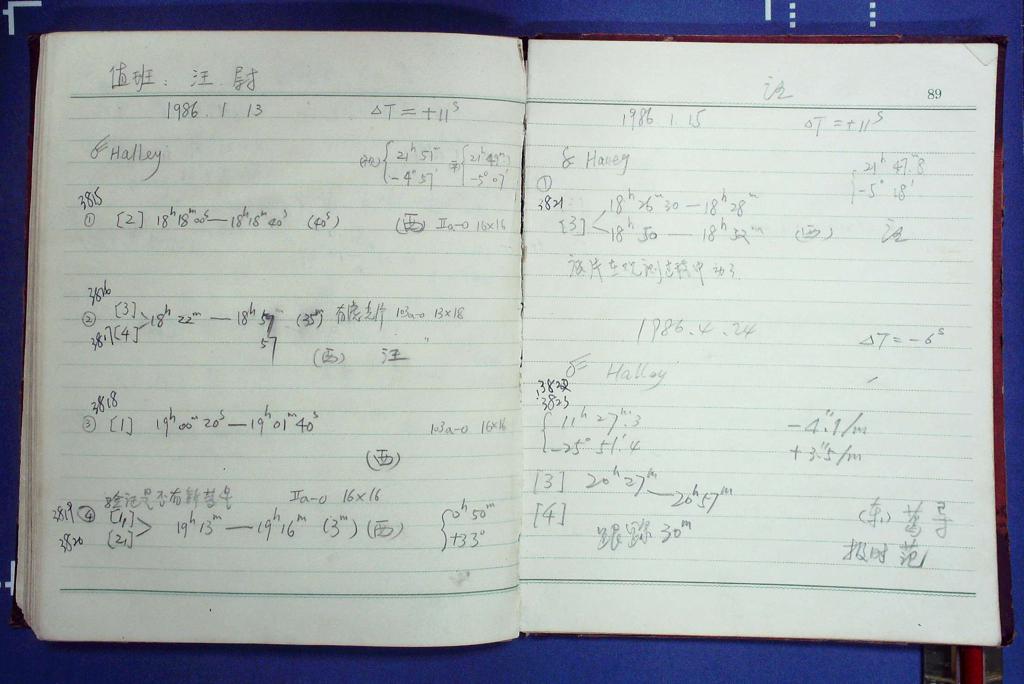 值班: 汪 尉
1986.1.13 ΔT=+11ˢ
Halley {21ʰ51ᵐ {21ʰ49ᵐ
-4°57′ -5°07′
3815
① [2] 18ʰ18ᵐ00ˢ—18ʰ18ᵐ40ˢ (40ˢ) (西) Ⅱa-0 16×16
3816
② [3] 18ʰ22ᵐ—18ʰ57ᵐ (35ᵐ) 103a-0 13×18
3817 [4] 57
(西) 汪
3818
③ [1] 19ʰ00ᵐ20ˢ—19ʰ01ᵐ40ˢ 103a-0 16×16
(西)
验证是否有新彗星 Ⅱa-0 16×16
3819 ④ [1] 19ʰ13ᵐ—19ʰ16ᵐ (3ᵐ) (西) {0ʰ50ᵐ
3820 [2] +33°
汪
89
1986.1.15 ΔT=+11ˢ
Halley {21ʰ47ᵐ.8
-5°18′
①
3821 18ʰ26ᵐ30—18ʰ28ᵐ
[3] 18ʰ50—18ʰ52ᵐ (西) 汪
该片在观测过程中动了.
1986.4.24 ΔT=-6ˢ
Halley
3822
3823
{11ʰ27ᵐ.3 -4″.9/m
-25°51′.4 +3″.5/m
[3] 20ʰ27ᵐ—20ʰ57ᵐ
[4] 跟踪30ᵐ (东) 葛
报时 范